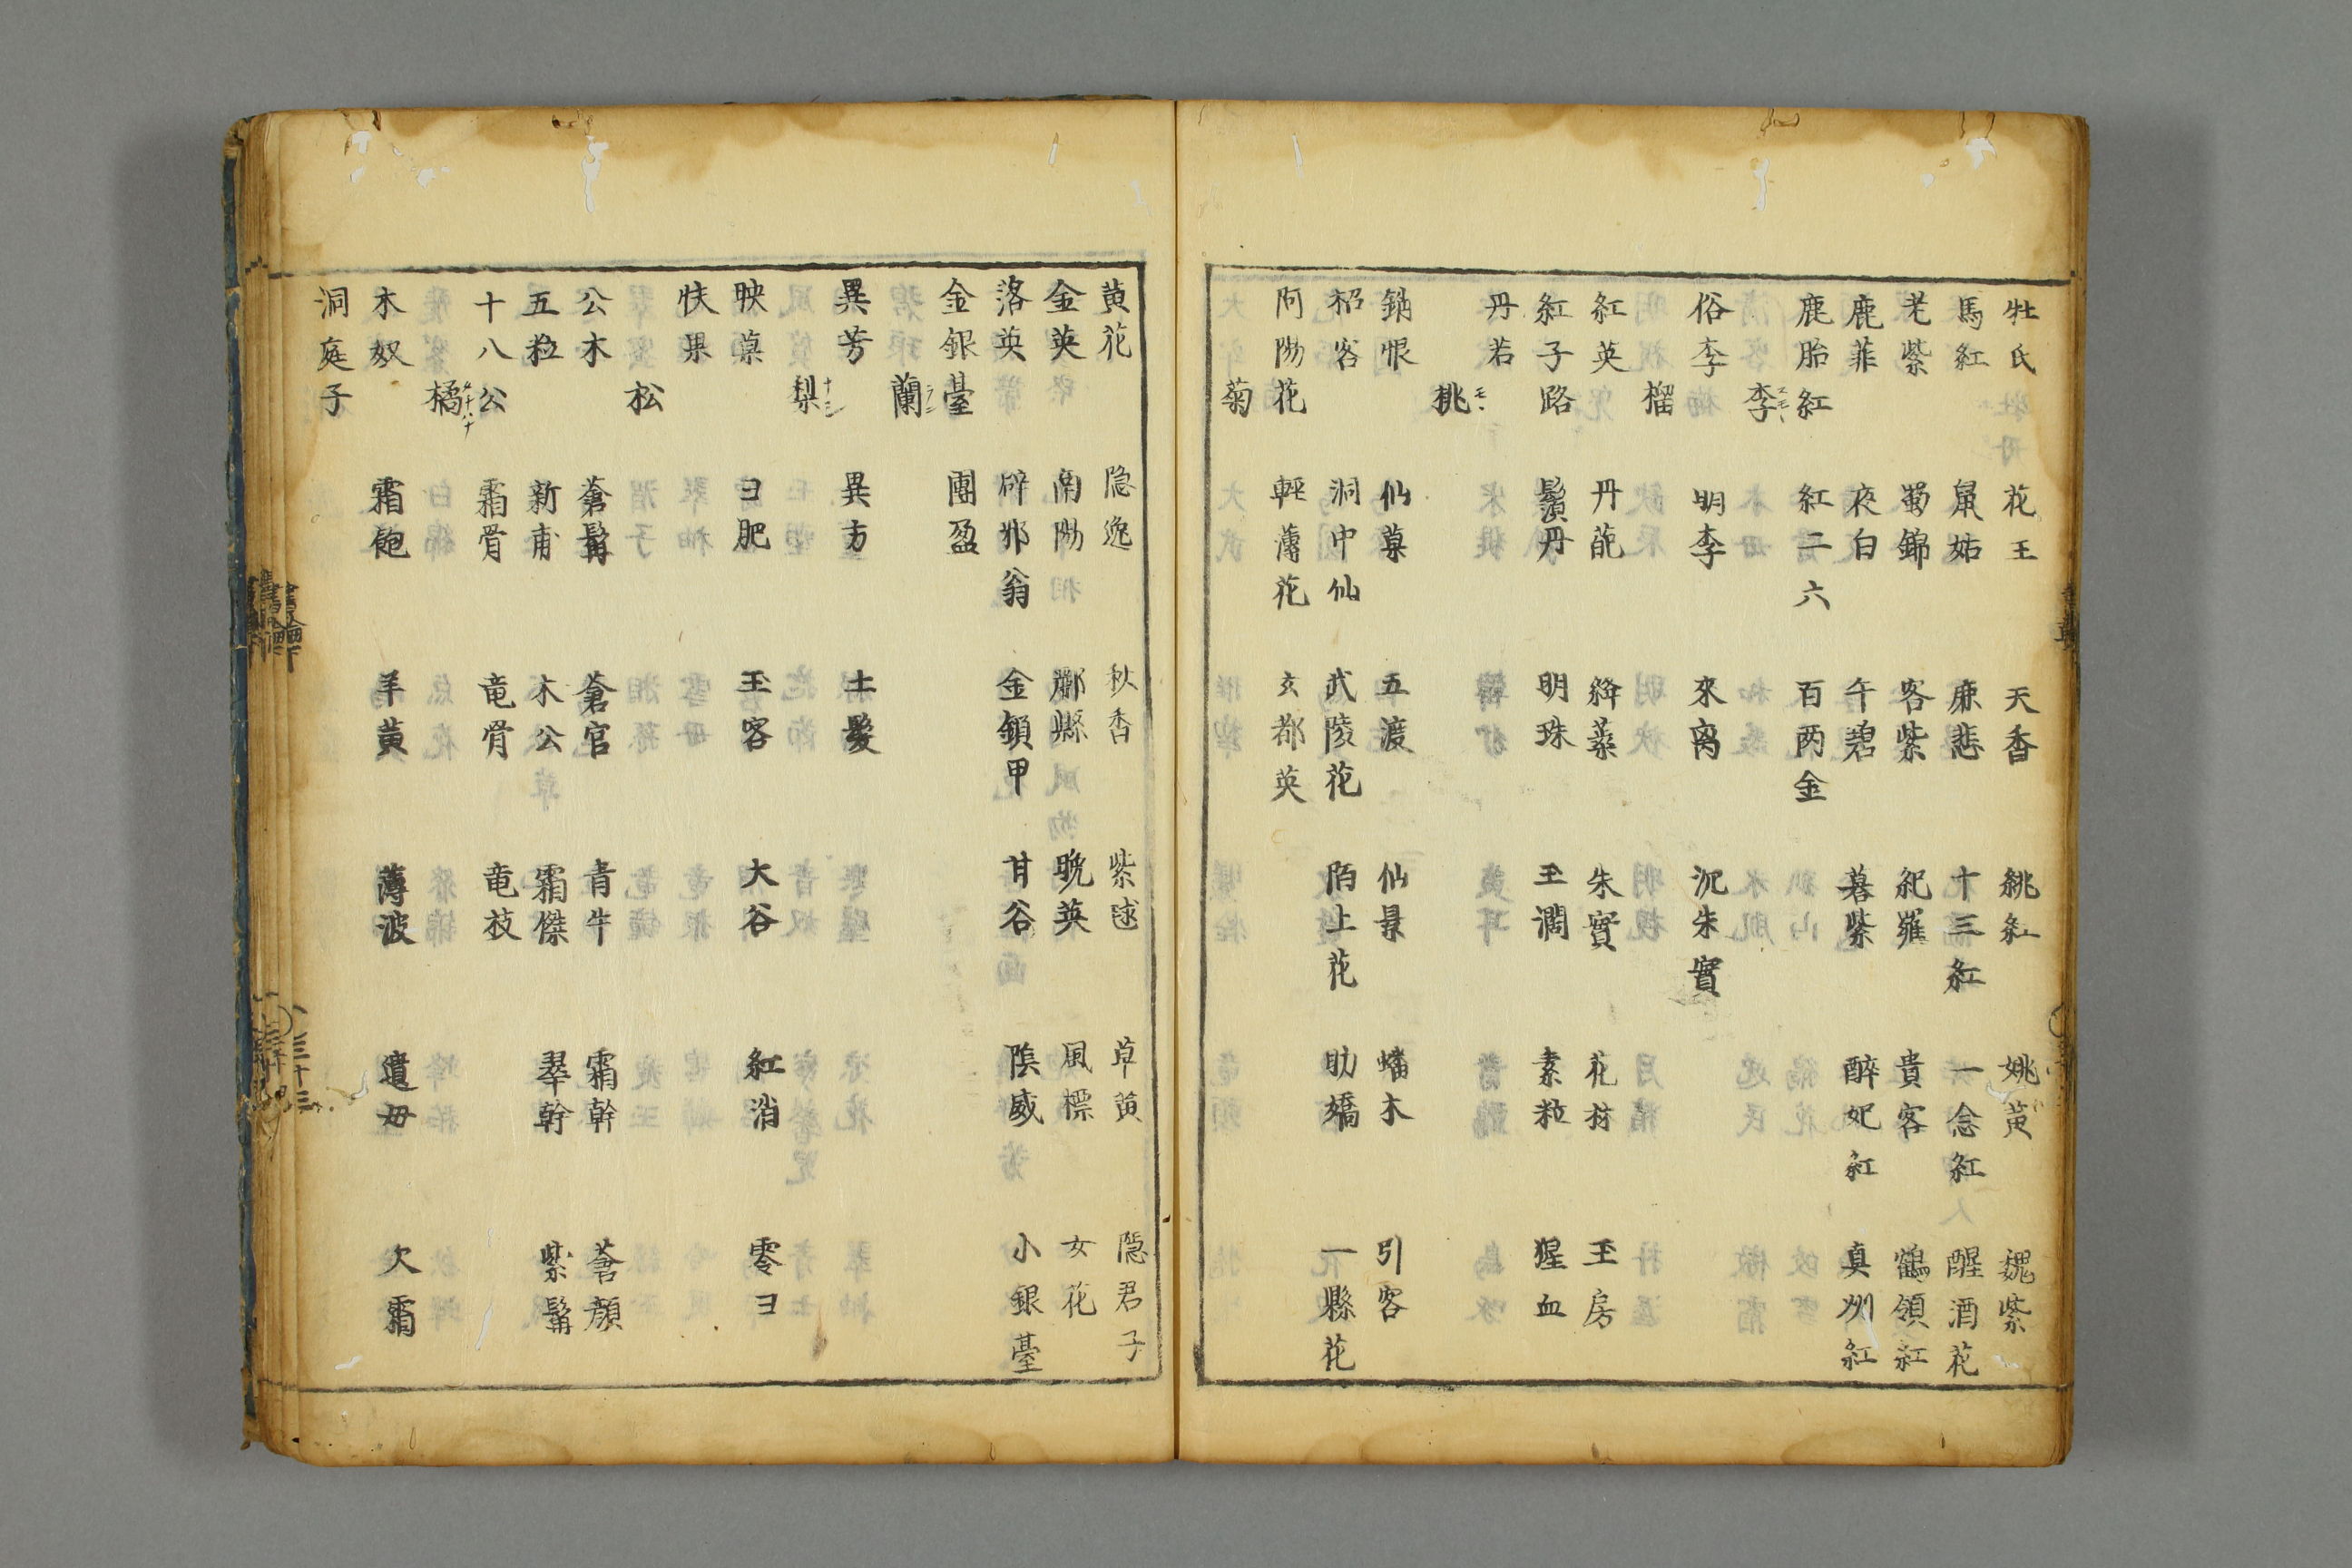 牡氏 花王 天香 姚紅 姚黄 魏紫
馬紅 鼠姑 麻悲 十三紅 一念紅 醒酒花
老紫 蜀錦 客紫 紀羅 貴客 鶴領紅
鹿菲 夜白 午碧 暮紫 醉妃紅 真州紅
鹿胎紅 紅二六 百两金
李
俗李 明李 來禽 沉朱實
榴
紅英 丹葩 絳蘂 朱實 花材 玉房
紅子路 鬚丹 明珠 玉潤 素粒 猩血
丹若
桃
銷恨 仙菓 五渡 仙景 蟠木 引客
招客 洞中仙 武陵花 陌上花 助嬌 一縣花
阿陽花 輕薄花 玄都英
菊
黄花 隐逸 秋香 紫毬 草黄 隠君子
金英 南陽 酈縣 晩英 風標 女花
落英 辟邪翁 金鎖甲 甘谷 陰威 小銀臺
金銀臺 團盈
蘭
異芳 異方 土髮
梨
映菓 ヨ肥 玉容 大谷 紅消 零ヨ
快果
松
公木 蒼髯 蒼官 青牛 霜幹 蒼顔
五粒 新甫 木公 霜傑 翠幹 紫髯
十八公 霜骨 竜骨 竜枝
橘
木奴 霜飽 羊黄 薄波 遺母 欠霜
洞庭子